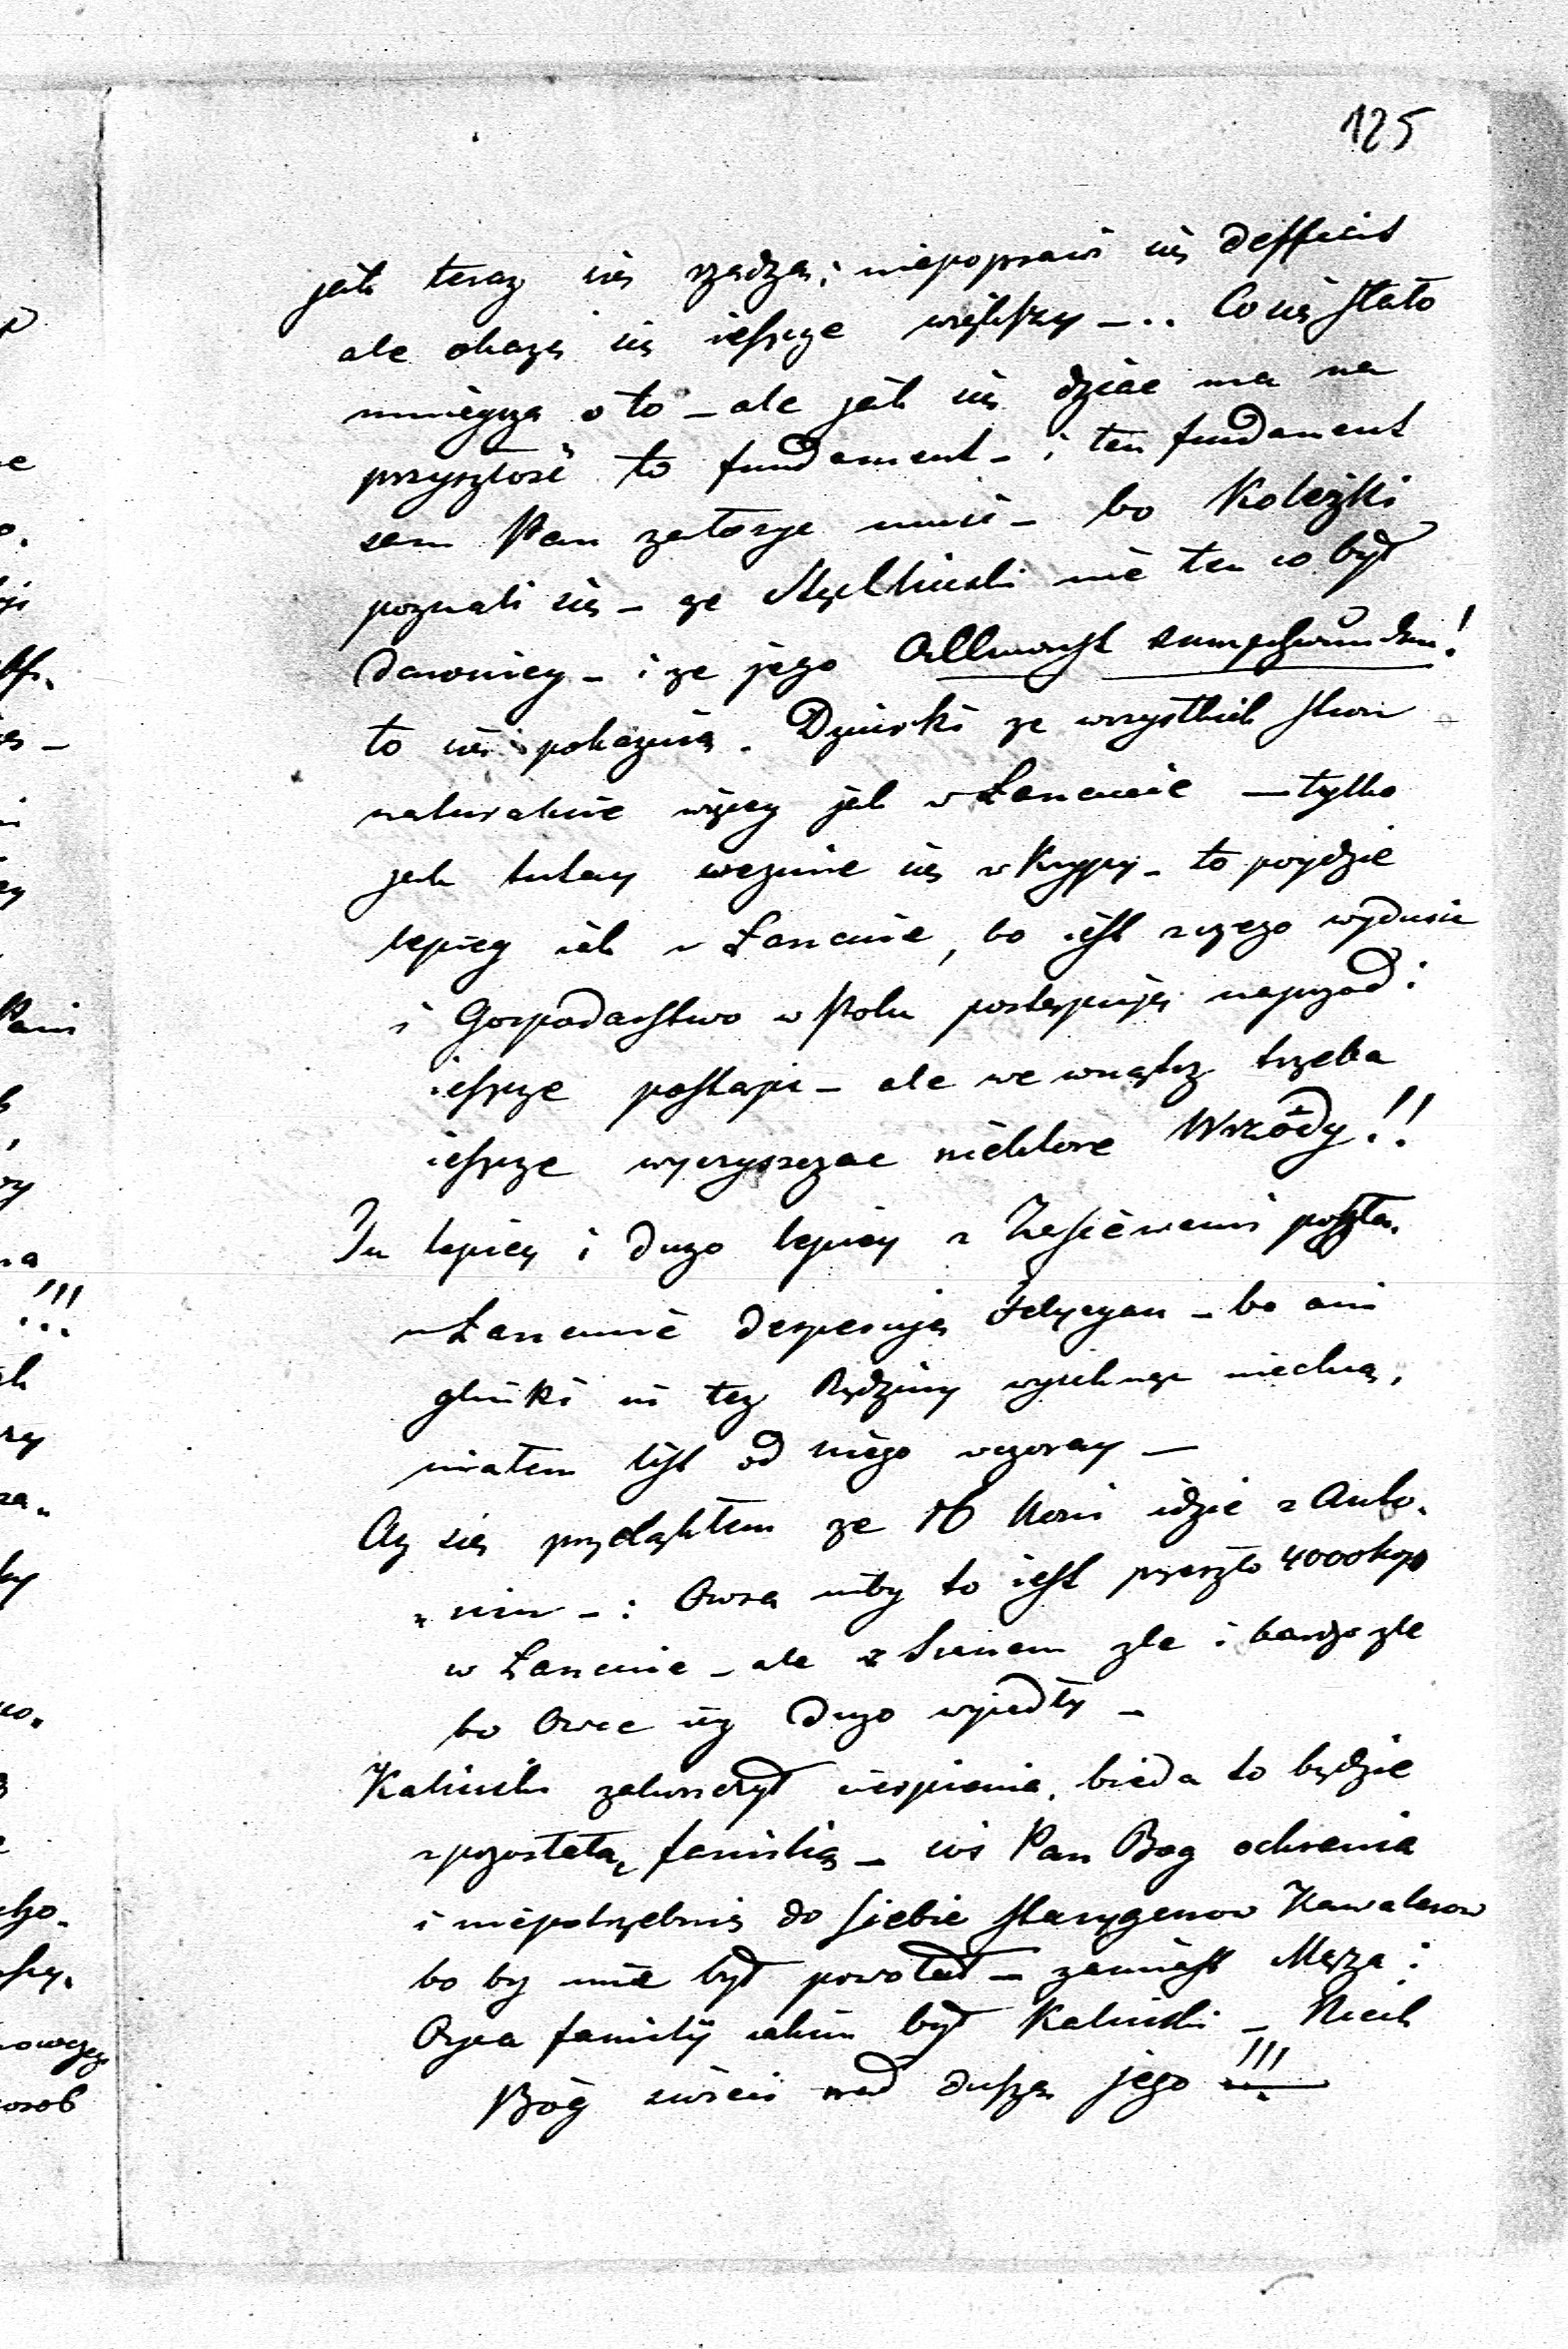 125
jak teraz się rządzą; niepoprawi się defficit
ale okaże się ieszcze większy — .. Co się stało
mnieysza o to — ale jak się dziac ma na
przyszłosć to fundament — i ten fundament
sam Pan założyc musi — bo Koleżki
poznali się — ze nie ten co był
dawniey — i ze jego Allmacht !
to się pokazuie. Dziurki ze wszystkich stron
naturalnie więcey jak w Łancucie — tylko
jak tutay wezmie się w Kryzy — to poydzie
lepiey iak w Łancucie, bo iest z czego wydusic
i Gospodarstwo w Polu postępuje naprzod i
ieszcze postąpi — ale we wnątrz trzeba
ieszcze wyczyszczac niektore Wrzódy !!
Tu lepiey i dużo lepiey z Zasiewami poszło.
w Łancucie desperuje Felycyan — bo ani
glinki ni tez Rędziny wyschnąc niechcą,
miałem list od niego wczoray —
Az się przeląkłem ze 16 Koni idzie z Anto-
„nim — : Owsa niby to iest przeszło 4000 kop
w Łancucie — ale z Sianem zle i bardzo zle
bo Owce iuz duzo wyiadły —
Kaliński zakonczył cierpienia, bieda to będzie
z pozostałą familią — cos Pan Bog ochrania
i niepotrzebuie do siebie starych Kawalerow
bo by mnie był powołał — zamiast Męza i
Oyca familij iakim był Kaliński — Niech
Bóg swieci nad duszą jego !!!